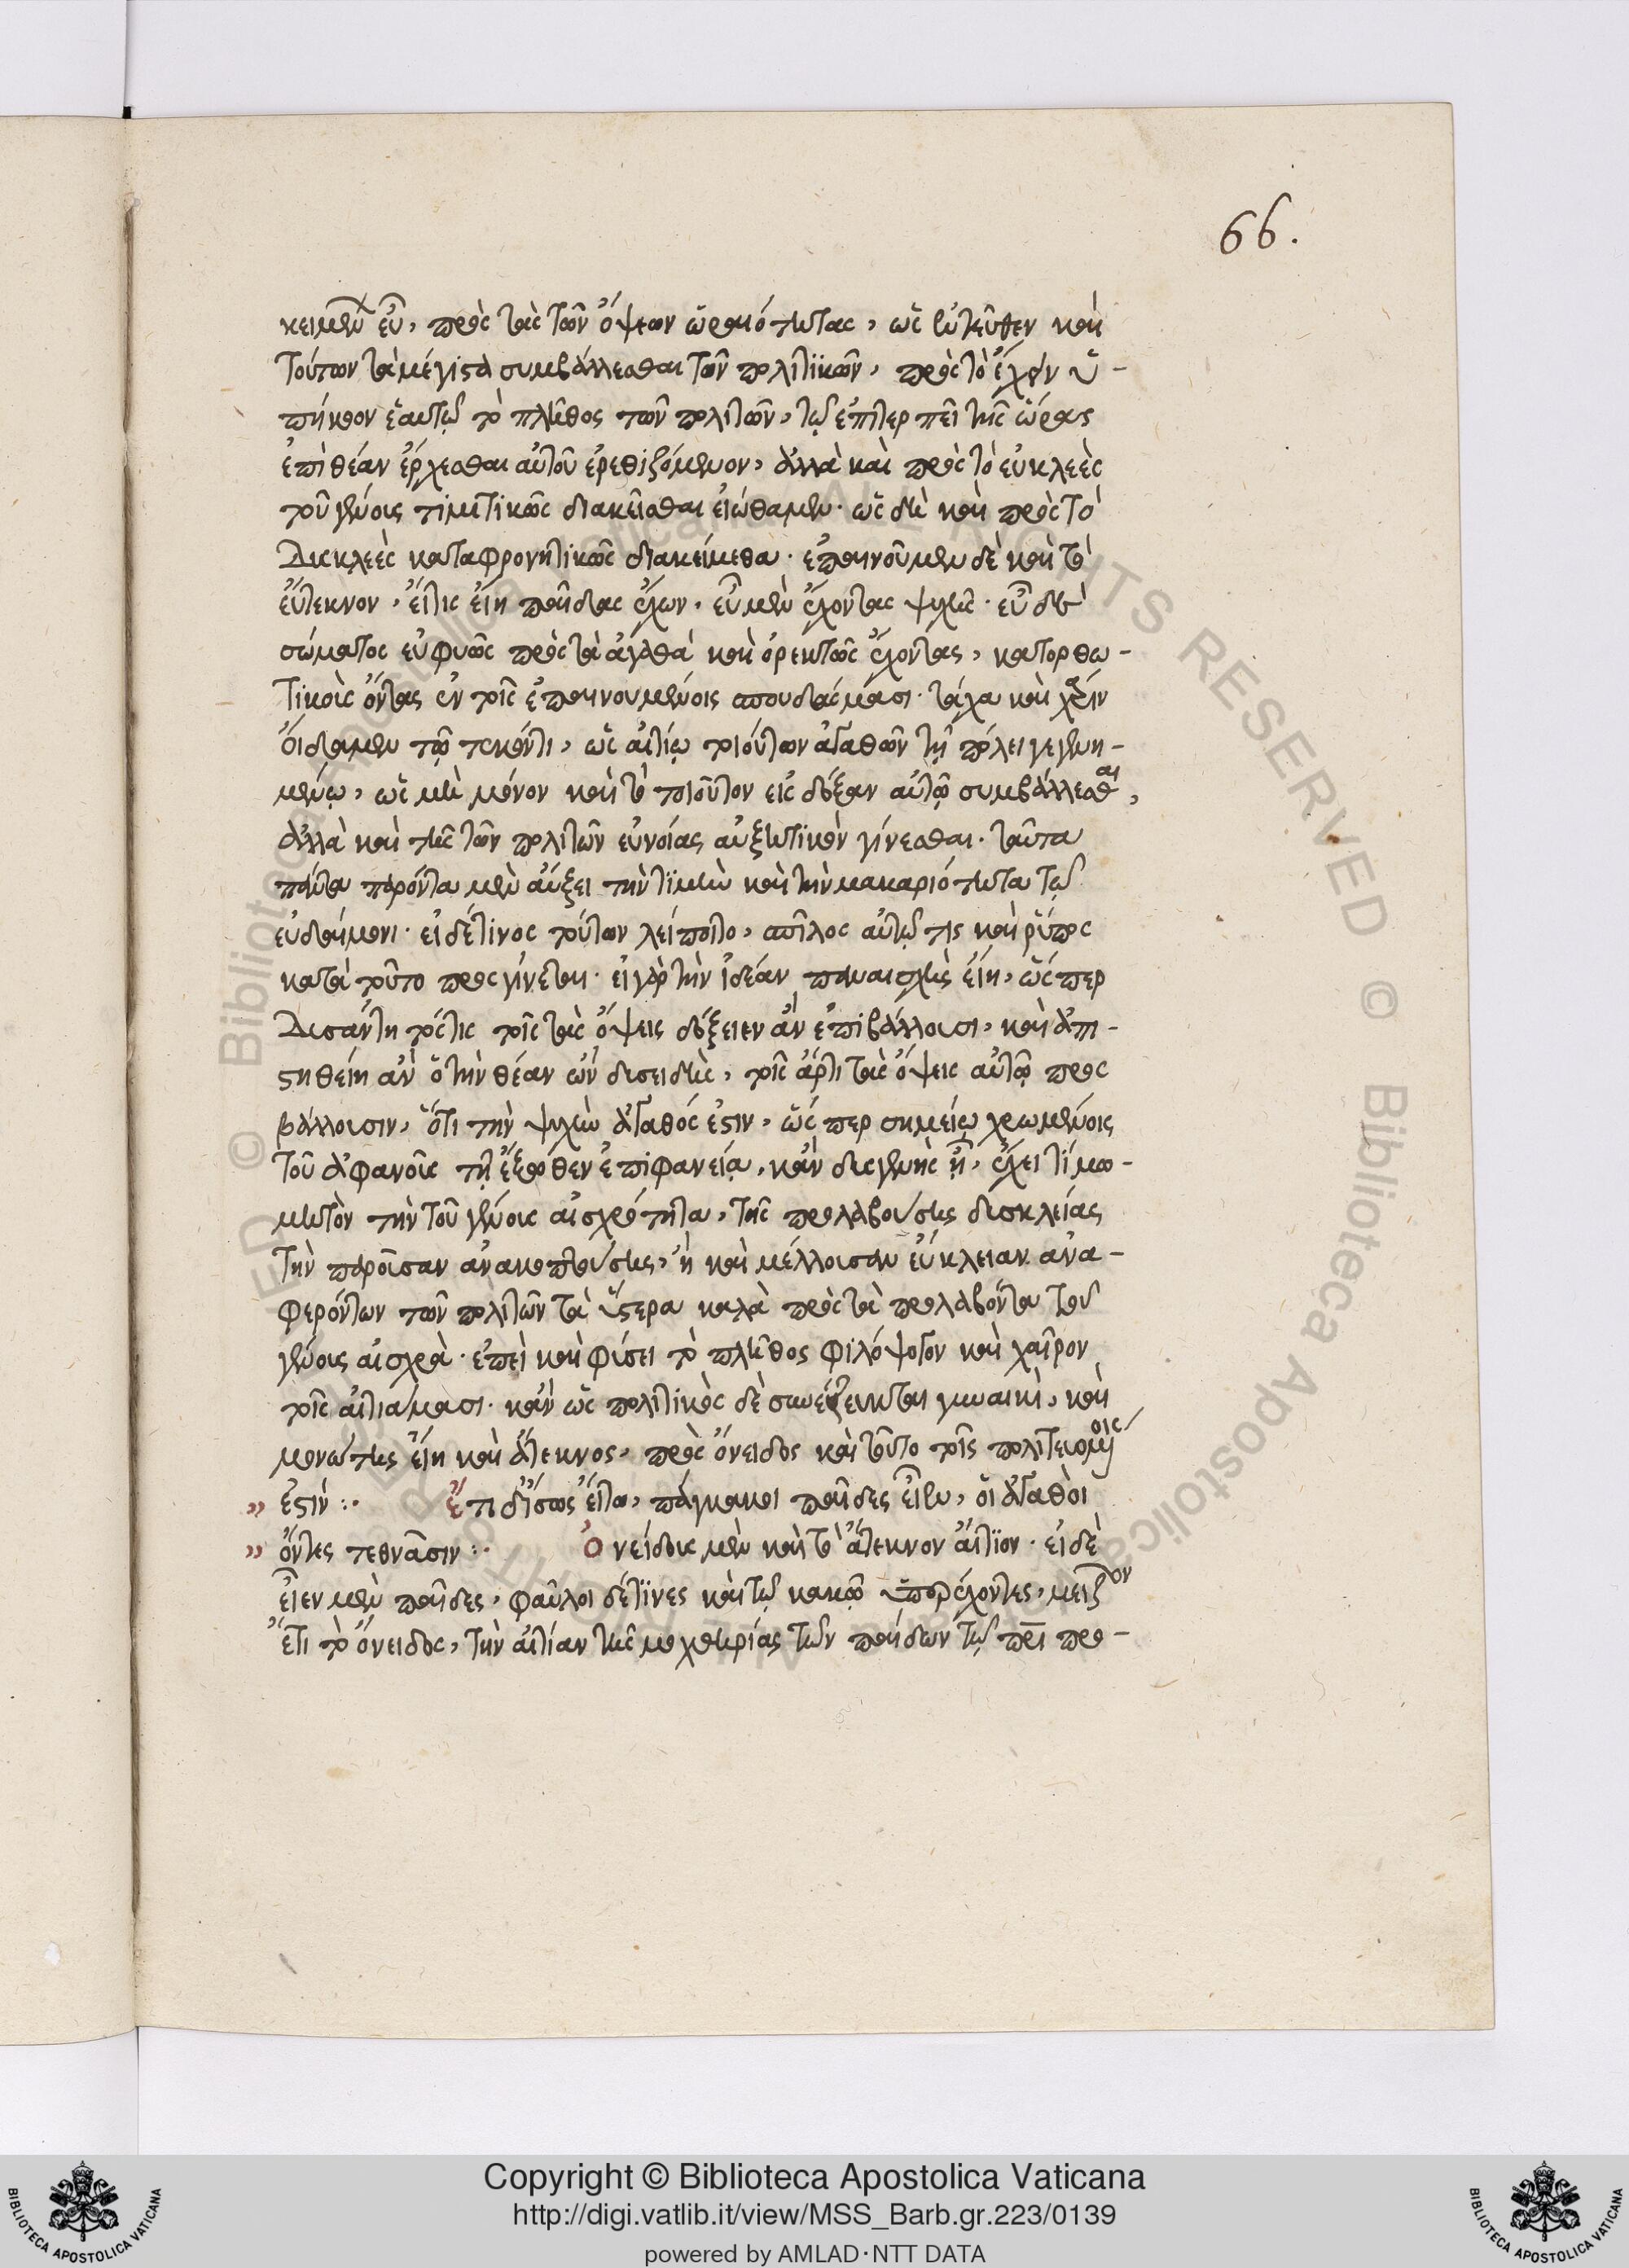 66.
κειμένου εὖ, πρὸς τὰς τῶν ὄψεων ὡραιότητας, ὡς ἐντεῦθεν καὶ
τούτων τὰ μέγιστα συμβάλλεσθαι τῶν πολιτικῶν, πρὸς τὸ ἔχειν ὑ-
πήκοον ἑαυτῷ τὸ πλῆθος τῶν πολιτῶν, τῷ ἐπιτερπεῖ τῆς ὥρας
ἐπὶ θέαν ἔρχεσθαι αὐτοῦ ἐρεθιζόμενον, ἀλλὰ καὶ πρὸς τὸ εὐκλεὲς
τοῦ γένους τιμητικῶς διακεῖσθαι εἰώθαμεν· ὡς δὴ καὶ πρὸς τὸ
δυσκλεὲς καταφρονητικῶς διακείμεθα· ἐπαινοῦμεν δὲ καὶ τὸ
εὔτεκνον, εἴ τις εἴη παῖδας ἔχων, εὖ μὲν ἔχοντας ψυχῆς· εὖ δὲ
σώματος εὐφυῶς πρὸς τὰ ἀγαθὰ καὶ ὀρεκτῶς ἔχοντας, κατορθω-
τικοὺς ὄντας ἐν τοῖς ἐπαινουμένοις σπουδάσμασι· τάχα καὶ χάριν
οἴδαμεν τῷ τεκόντι, ὡς αἰτίῳ τοιούτων ἀγαθῶν τῇ πόλει γεγενη-
μένῳ, ὡς μὴ μόνον καὶ τὸ τοιοῦτον εἰς δόξαν αὐτῷ συμβάλλεσθαι,
ἀλλὰ καὶ τῆς τῶν πολιτῶν εὐνοίας αὐξητικὸν γίνεσθαι· ταῦτα
πάντα παρόντα μὲν αὔξει τὴν τιμὴν καὶ τὴν μακαριότητα τῷ
εὐδαίμονι· εἰ δέ τινος τούτων λείποιτο, σπῖλος αὐτῷ τις καὶ ῥύπος
κατὰ τοῦτο προσγίνεται· εἰ γὰρ τὴν ἰδέαν παναισχὴς εἴη, ὥσπερ
δυσάντη τοῖς τὰς ὄψεις δόξειεν ἂν ἐπιβάλλουσι, καὶ ἀπι-
στηθείη ἂν ὁ τὴν θέαν ὢν δυσειδὴς, τοῖς ἄρτι τὰς ὄψεις αὐτῷ προσ
βάλλουσιν, ὅτι τὴν ψυχὴν ἀγαθός ἐστιν, ὥσπερ σημείῳ χρωμένοις
τοῦ ἀφανοῦς τῇ ἔξωθεν ἐπιφανείᾳ, κἂν δυσγενὴς ᾖ, ἔχει τί μω-
μητὸν τὴν τοῦ γένους αἰσχρότητα, τῆς προλαβούσης δυσκλείας
τὴν παροῦσαν ἀνακοπτούσης, ἢ καὶ μέλλουσαν εὔκλειαν ἀνα-
φερόντων τῶν πολιτῶν τὰ ὕστερα καλὰ πρὸς τὰ προλαβόντα τοῦ
γένους αἰσχρὰ· ἐπεὶ καὶ φύσει τὸ πλῆθος φιλόψογον καὶ χαῖρον
τοῖς αἰτιάμασι· κἂν ὡς πολιτικὸς δὲ συνέζευκται γυναικὶ, καὶ
μονώτης εἴη καὶ ἄτεκνος, πρὸς ὄνειδος καὶ τοῦτο τοῖς πολιτευομένοις
" ἐστίν:· ἔτι δ' ἴσως εἴτω, πάγκακοι παῖδες εἶεν, οἳ ἀγαθοὶ
" ὄντες τεθνᾶσιν:· Ὀνείδους μὲν καὶ τὸ ἄτεκνον αἴτιον· εἰ δὲ
εἶεν μὲν παῖδες, φαῦλοι δέ τινες καὶ τῷ κακῷ ὑπερέχοντες, μεῖζον
ἔτι τὸ ὄνειδος, τὴν αἰτίαν τῆς μοχθηρίας τῶν παίδων τῷ πρι προ-
Copyright © Biblioteca Apostolica Vaticana
http://digi.vatlib.it/view/MSS_Barb.gr.223/0139
powered by AMLAD·NTT DATA